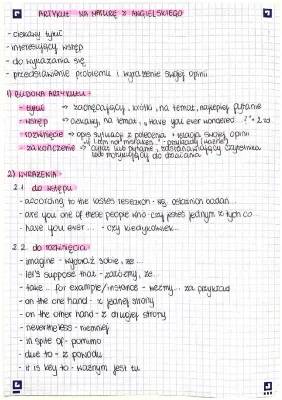 ARTYKUŁ NA MATURĘ Z ANGIELSKIEGO
- ciekawy tytuł
- interesujący wstęp
- do wyrażania się
- przedstawienie problemu i wyrażenie swojej opinii
1) BUDOWA ARTYKUŁU:
- tytuł => zachęcający, krótki, na temat, najlepiej pytanie
- wstęp => ciekawy, na temat, "Have you ever wondered ...?" + 2 zd
- rozwinięcie => opis sytuacji z polecenia + relacja swojej opinii
"if I am not mistaken..." - przykłady (ważne)
- zakończenie => cytat lub pytanie, zastanawiający czytelnika
lub motywujący do działania
2) WYRAŻENIA:
2.1. do wstępu
- according to the lastes research - wg ostatnich badań...
- are you one of these people who - czy jesteś jednym z tych co...
- have you ever ... - czy kiedykolwiek...
2.2. do rozwinięcia
- imagine - wyobraź sobie, że...
- let's suppose that - załóżmy, że...
- take... for example/instance - weźmy... za przykład
- on the one hand - z jednej strony
- on the other hand - z drugiej strony
- nevertheless - niemniej
- in spite of - pomimo
- due to - z powodu
- it is key to - ważnym jest tu